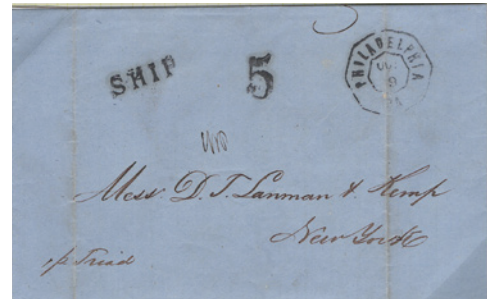 SHIP
5
PHILADELPHIA
9
Mess. D. T. Lanman & Kemp
New York
p Triad